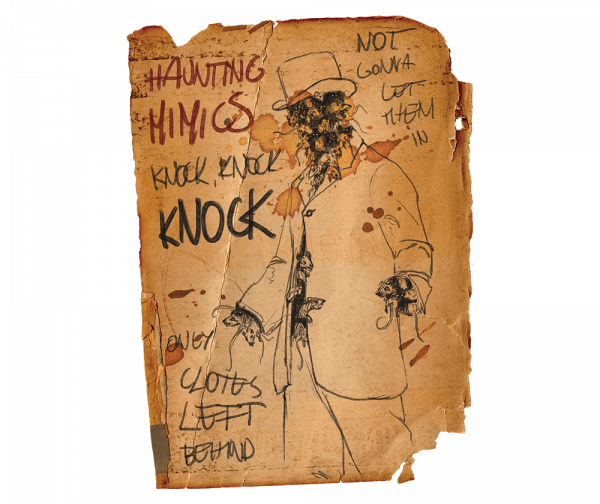 HAUNTING
MIMICS
KNOCK, KNOCK
KNOCK
NOT
GONNA
LET
THEM
IN
ONLY
CLOTES
LEFT
BEHIND